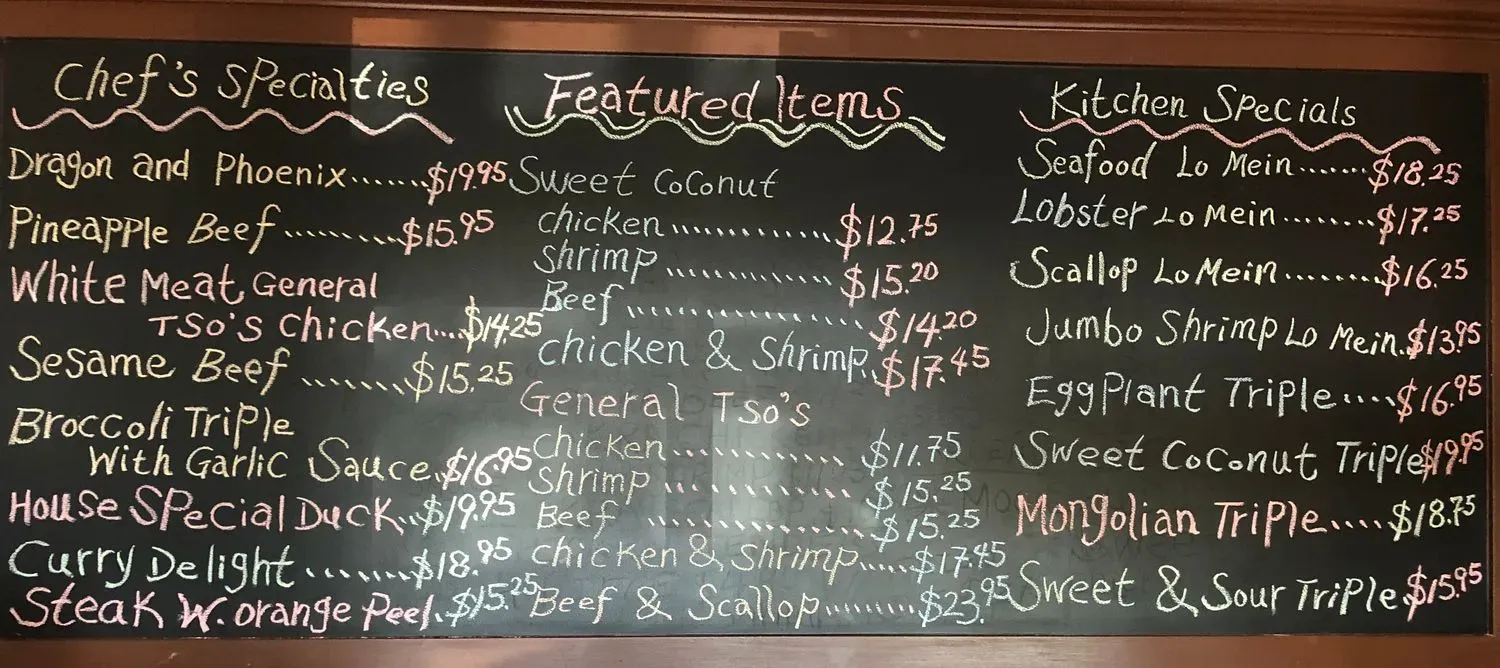 Chef's Specialties
Dragon and Phoenix.......$19.95
Pineapple Beef.........$15.95
White Meat General
Tso's Chicken....$14.25
Sesame Beef.......$15.25
Broccoli Triple
With Garlic Sauce.$16.95
House Special Duck..$19.95
Curry Delight.......$18.95
Steak W. orange Peel.$15.25
Featured Items
Sweet Coconut
chicken.............$12.75
shrimp.............$15.20
Beef..............$14.20
chicken & Shrimp.$17.45
General Tso's
chicken............$11.75
Shrimp............$15.25
Beef..............$15.25
chicken & shrimp.....$17.45
Beef & Scallop.........$23.95
Kitchen Specials
Seafood Lo Mein.......$18.25
Lobster Lo Mein........$17.25
Scallop Lo Mein........$16.25
Jumbo Shrimp Lo Mein.$13.95
EggPlant Triple....$16.95
Sweet Coconut Triple$19.95
Mongolian Triple.....$18.75
Sweet & Sour Triple.$15.95